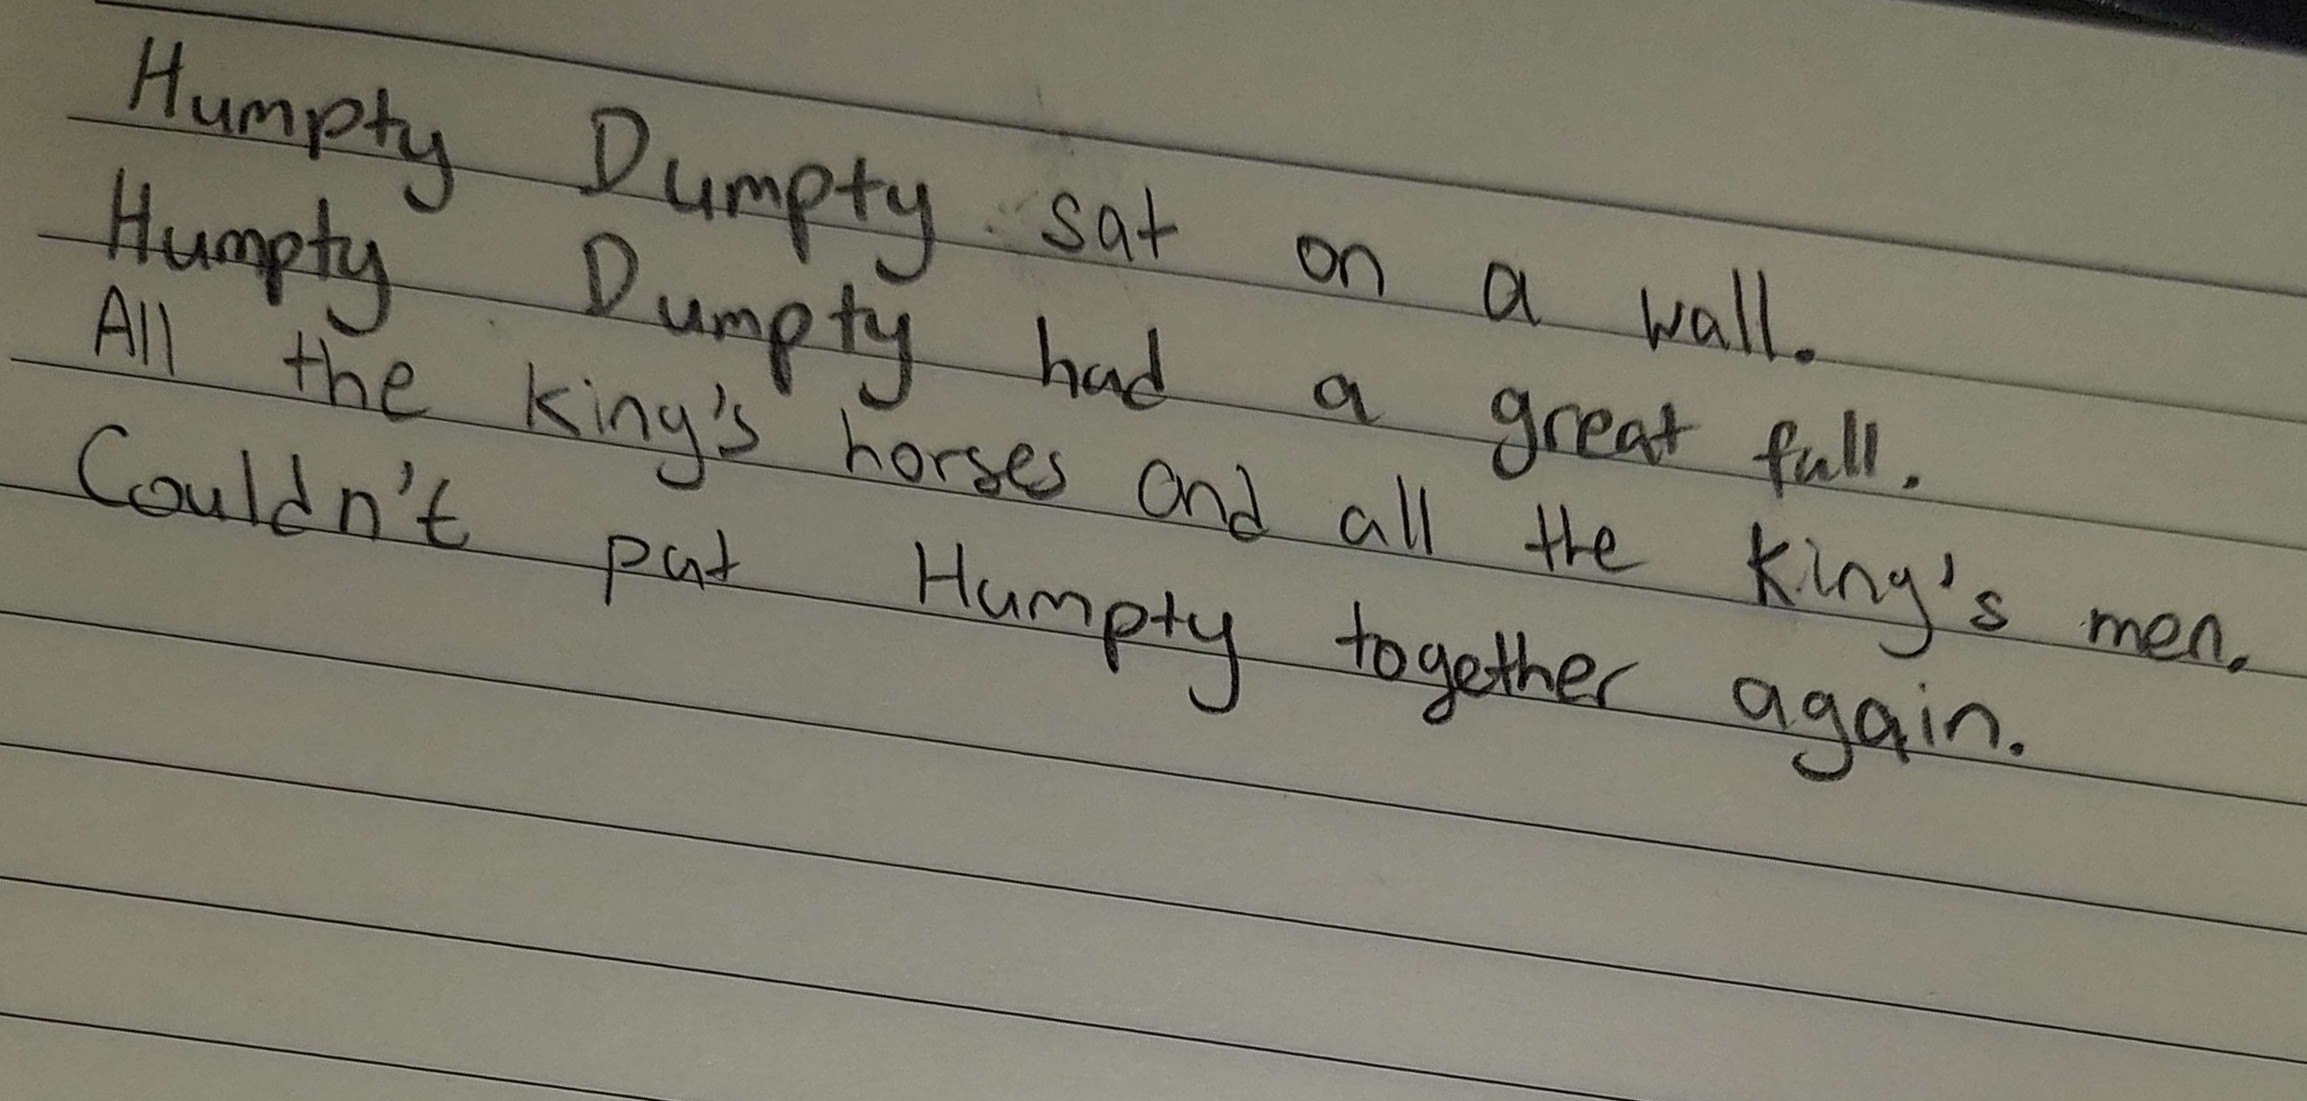 Humpty Dumpty sat on a wall.
Humpty Dumpty had a great fall.
All the king's horses and all the king's men.
Couldn't put Humpty together again.